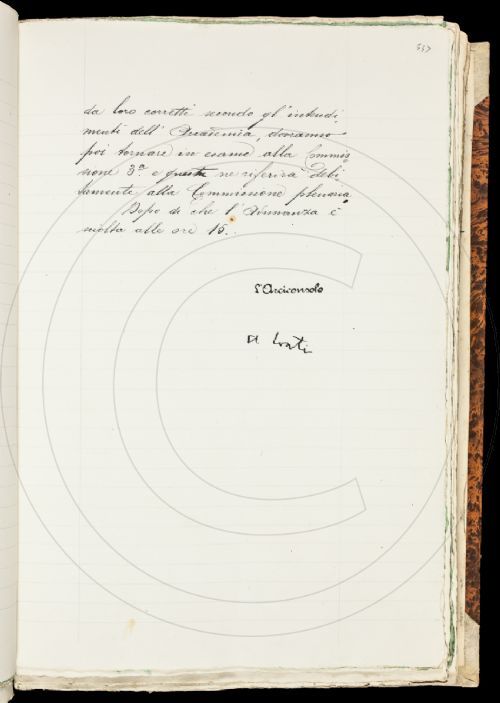 337
da loro corretti secondo gl'intendi
menti dell'Accademia, dovranno
poi tornare in esame alla Commis
sione 3ª e questa ne riferirà debi
tamente alla Commissione plenaria.
Dopo di che l'Adunanza è
sciolta alle ore 15.
L'Arciconsolo